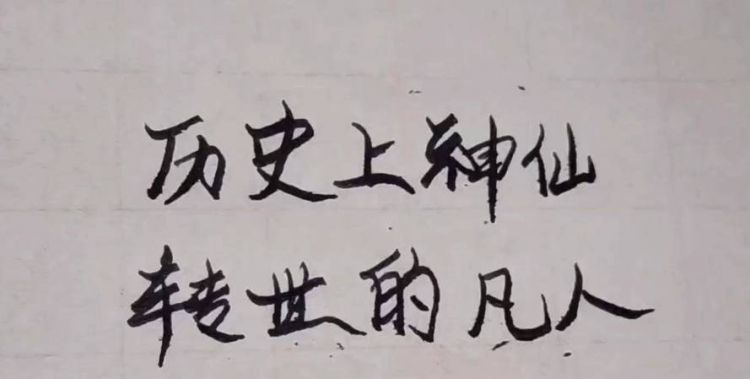 历史上神仙
转世的凡人